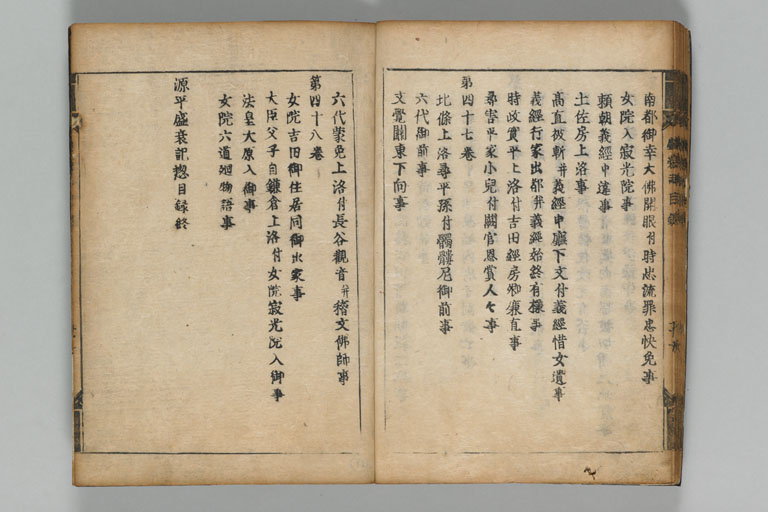 南都御幸大佛開眼付時忠流罪忠快免事
女院入寂光院事
頼朝義經中違事
土佐房上洛事
高直被斬并義經申廳下文付義經惜女遺事
義經行家出都并義經始終有様事
時政實平上洛付吉田經房卿廉直事
尋害平家小兒付闕官恩賞人々事
第四十七卷
北條上洛尋平孫付髑髏尼御前事
六代御前事
文覺關東下向事
六代蒙免上洛付長谷觀音并稽文佛師事
第四十八卷
女院吉田御住居同御出家事
大臣父子自鎌倉上洛付女院寂光院入御事
法皇大原入御事
女院六道廻物語事
源平盛衰記惣目録終